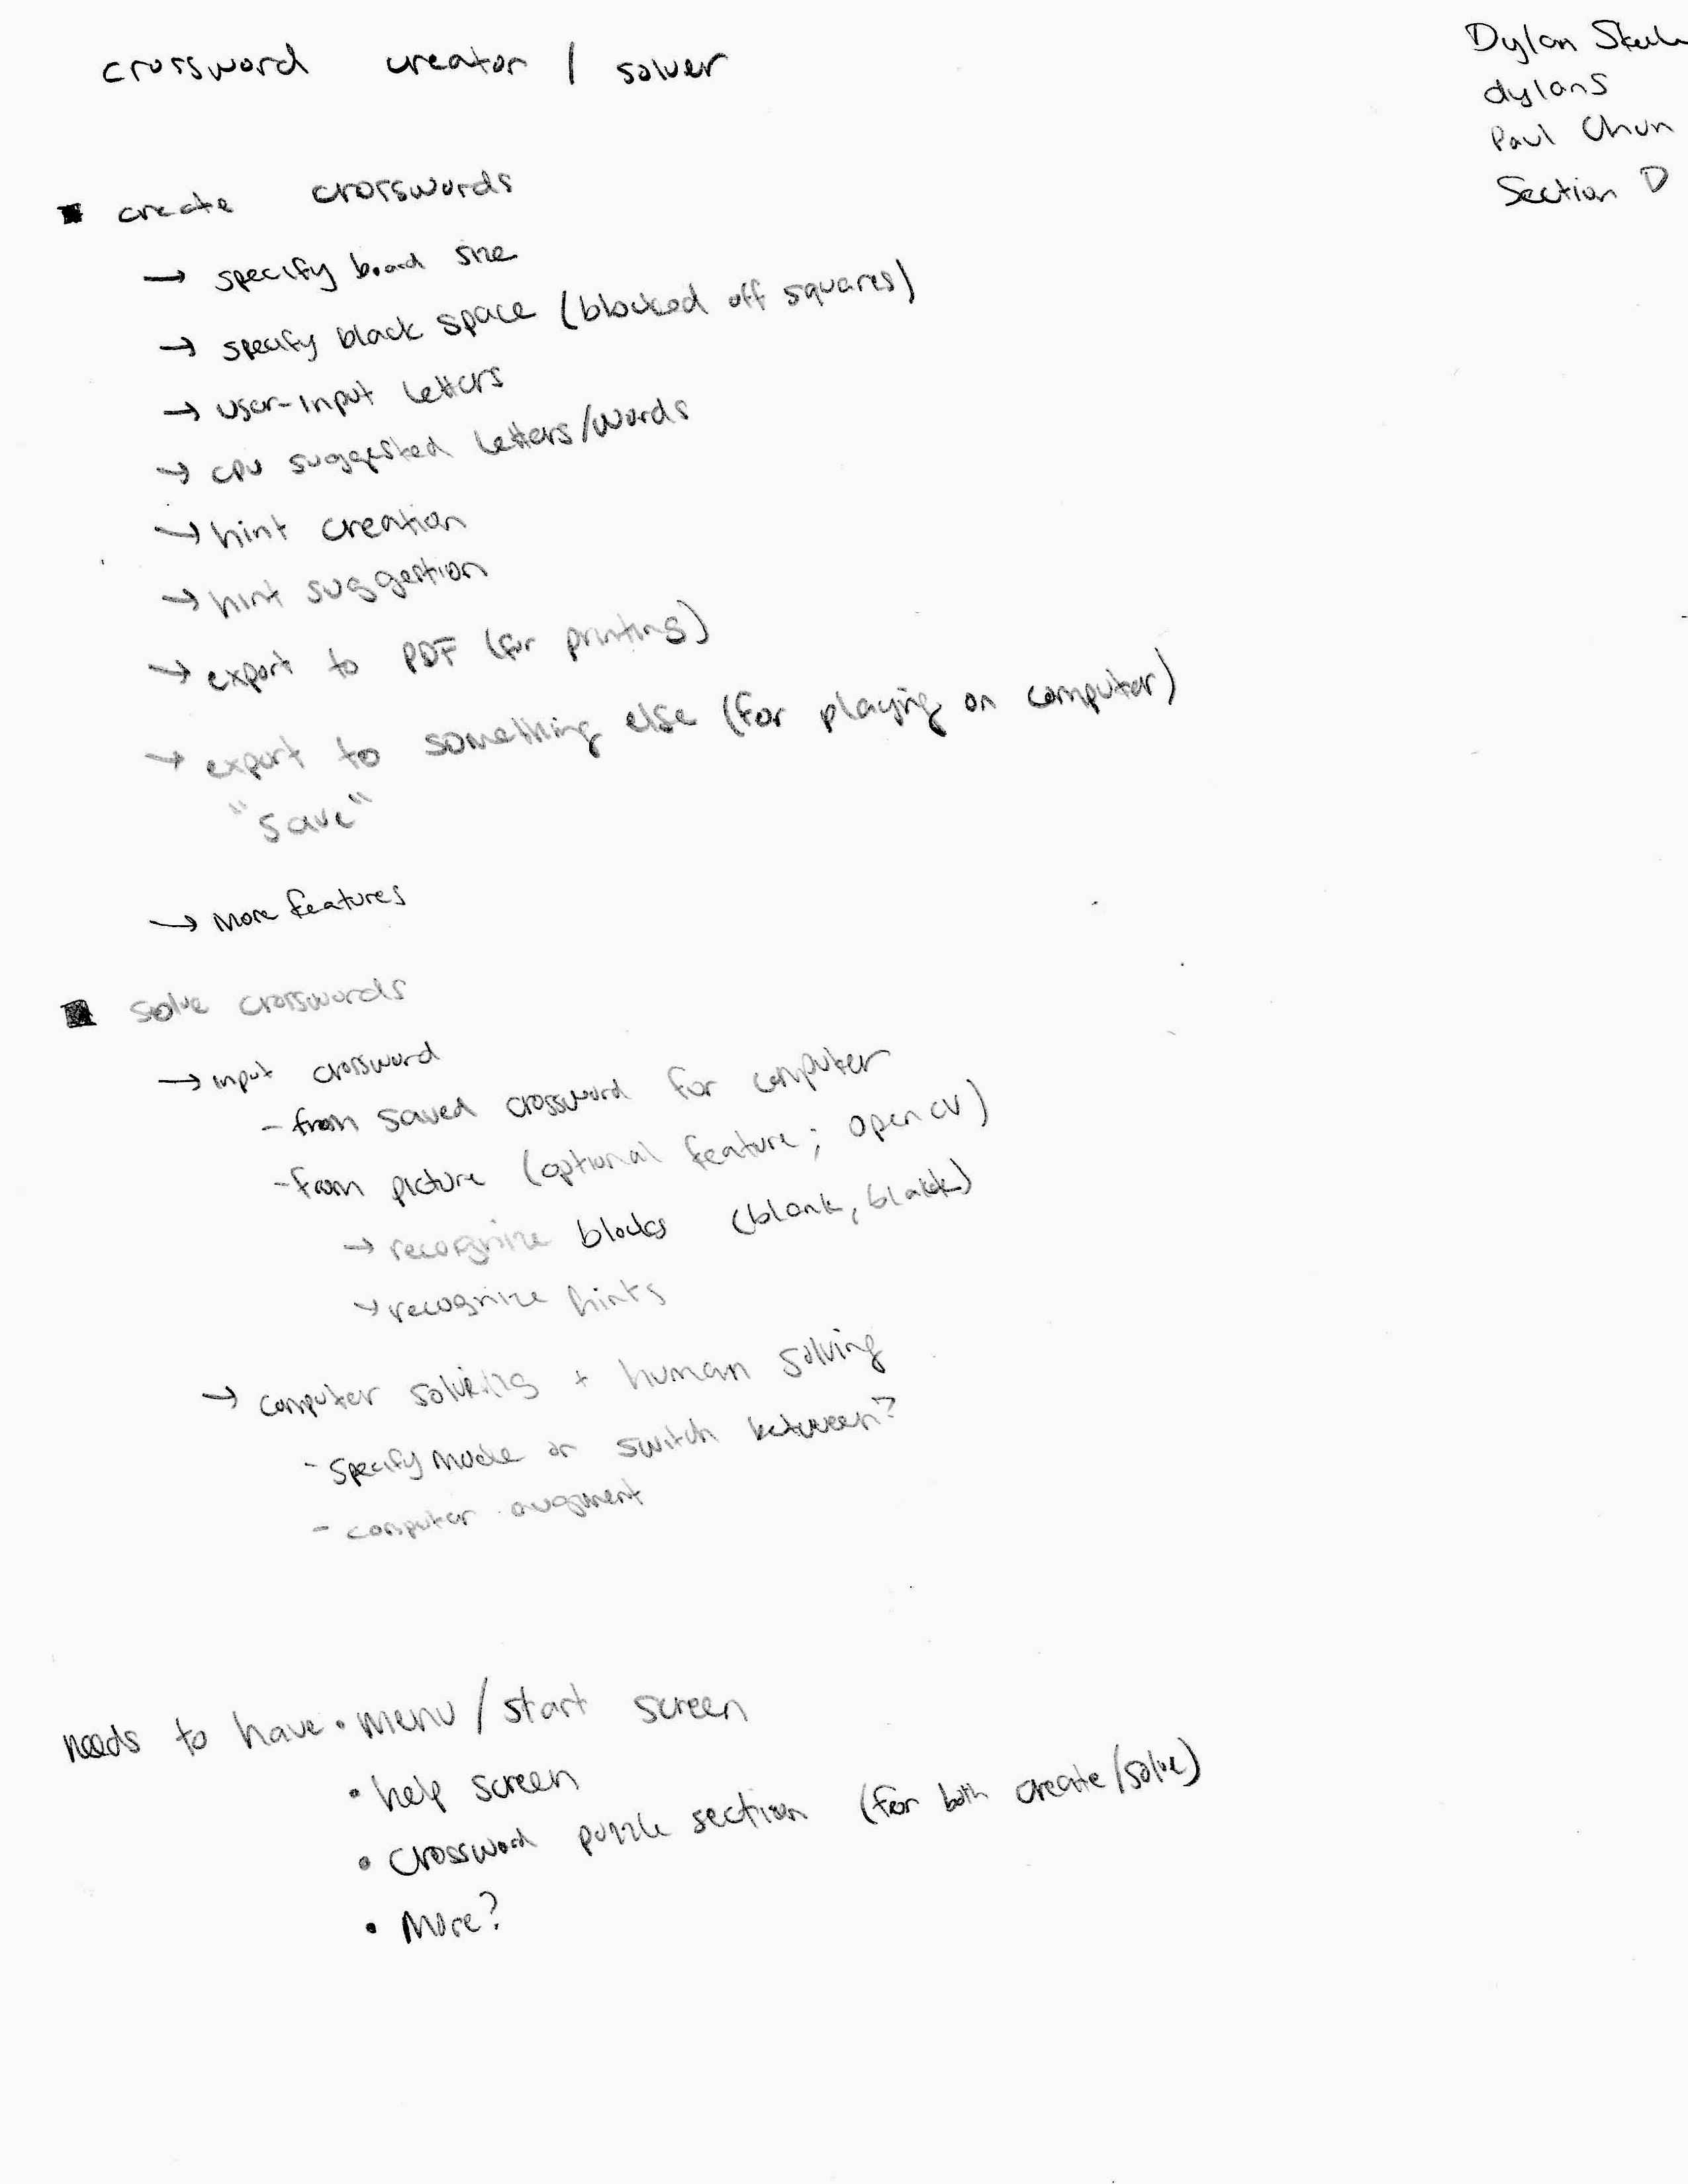 crossword creator / solver
Dylan
dylans
Paul Chun
Section D
■ create crosswords
→ specify board size
→ specify black space (blocked off squares)
→ user-input letters
→ cpu suggested letters/words
→ hint creation
→ hint suggestion
→ export to PDF (for printing)
→ export to something else (for playing on computer)
"save"
→ More features
■ solve crosswords
→ input crossword
- from saved crossword for computer
- from picture (optional feature; opencv)
→ recognize blocks (blank, black)
→ recognize hints
→ computer solving + human solving
- specify mode or switch between?
- computer augment
needs to have • menu / start screen
• help screen
• crossword puzzle section (for both create/solve)
• More?